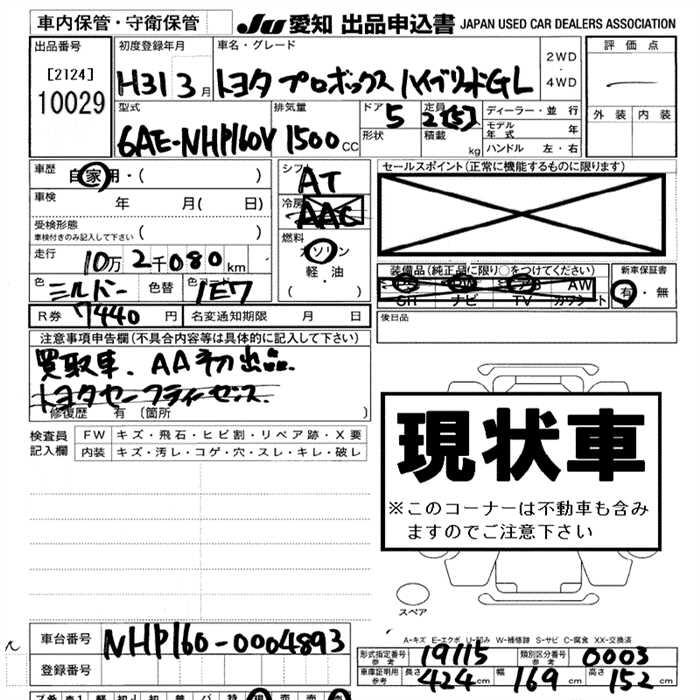 車内保管・守衛保管 JU 愛知 出品申込書 JAPAN USED CAR DEALERS ASSOCIATION
出品番号 初度登録年月 車名・グレード 評価点
[2124] 10029
H31 3月 トヨタ プロボックス ハイブリッドGL 2WD・4WD
外装 内装
型式 排気量 ドア 5 定員 2[5] ディーラー・並行
6AE-NHP160V 1500CC 形状 積載 kg モデル年式 年
ハンドル 左・右
車歴 自家用・( ) シフト AT セールスポイント(正常に機能するものに限ります)
車検 年 月( 日) 冷房 AAC
受検形態 車検付きのみ記入して下さい ( )
燃料 ガソリン
軽・油
( )
走行 10万2千080km
装備品(純正品に限り○をつけてください) 新車保証書
色 シルバー 色替 色コード 1E7
ナビ TV AW 有・無
R券 7440円 名変通知期限 月 日
後日品
注意事項申告欄(不具合内容等は具体的に記入して下さい)
買取車. AA初出品.
トヨタセーフティセンス.
修復歴 有 〔箇所 〕
検査員記入欄 FW キズ・飛石・ヒビ割・リペア跡・X要
内装 キズ・汚レ・コゲ・穴・スレ・キレ・破レ
現状車
※このコーナーは不動車も含みますのでご注意下さい
スペア
A-キズ E-エクボ U-凹み W-補修跡 S-サビ C-腐食 XX-交換済
車台番号 NHP160-0004893
形式指定番号 参考 19115 類別区分番号 参考 0003
登録番号
車庫証明用 参考 長さ 424cm 幅 169cm 高さ 152cm